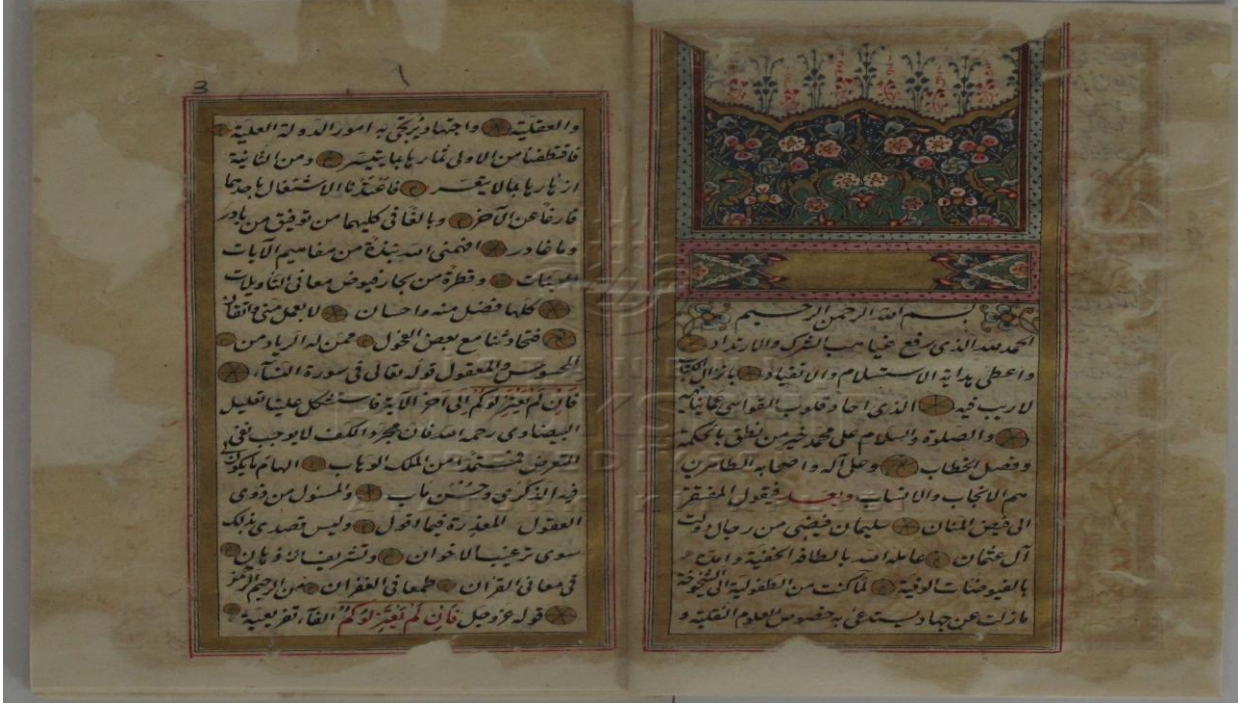 بسم الله الرحمن الرحيم
الحمد لله الذى رفع غياهب الشرك والارتداد
واعطى بداية الاستسلام والانقياد بانزال الكتاب
لا ريب فيه الذى احاد قلوب القواسى عما
والصلوة والسلام على محمد خير من نطق بالحكمة
وفصل الخطاب وعلى آله واصحابه الطاهرين
هم الانجاب والانساب وبعد فيقول المفتقر
الى فيض المنان سليمان فيضى من رجال دولت
آل عثمان عامله الله بالطافه الخفية
بالفيوضات الوفية لما كنت من الطفولية الى الشيخوخة
مازلت عن جهاد يستدعى به خصوص العلوم النقلية و
3
والعقلية واجتهاد يرتجى به امور الدولة العلية
فاقتطفنا من الاولى ثمارها بما تيسر ومن الثانية
ازهارها بما لا يتعسر الاشتغال باحديهما
فارغا عن الآخر وبالغا فى كليهما من توفيق من
وما غادر افهمنى الله نبذة من مفاهيم الآيات
البينات وقطرة من بحار فيوض معانى التأويلات
كلها فضل منه واحسان لا بعمل منى واتقان
فتحادثنا مع بعض الفحول ممن له الرياد من
المحسوس والمعقول قوله تعالى فى سورة النساء
فإن لم يعتزلوكم الى آخر الآية فاستشكل علينا تعليل
البيضاوى رحمه الله فان مجرد الكف لا يوجب نفى
التعرض مستمدا من الملك الوهاب الهام ما يكون
فيه الذكرى وحسن مآب والمسئول من ذوى
العقول المعذرة فيما اقول وليس تصدى بذلك
سوى ترغيب الاخوان وتشريف الاذهان
فى معانى القرآن طمعا فى الغفران من الرحيم
قوله عز وجل فإن لم يعتزلوكم الفاء تفريعية